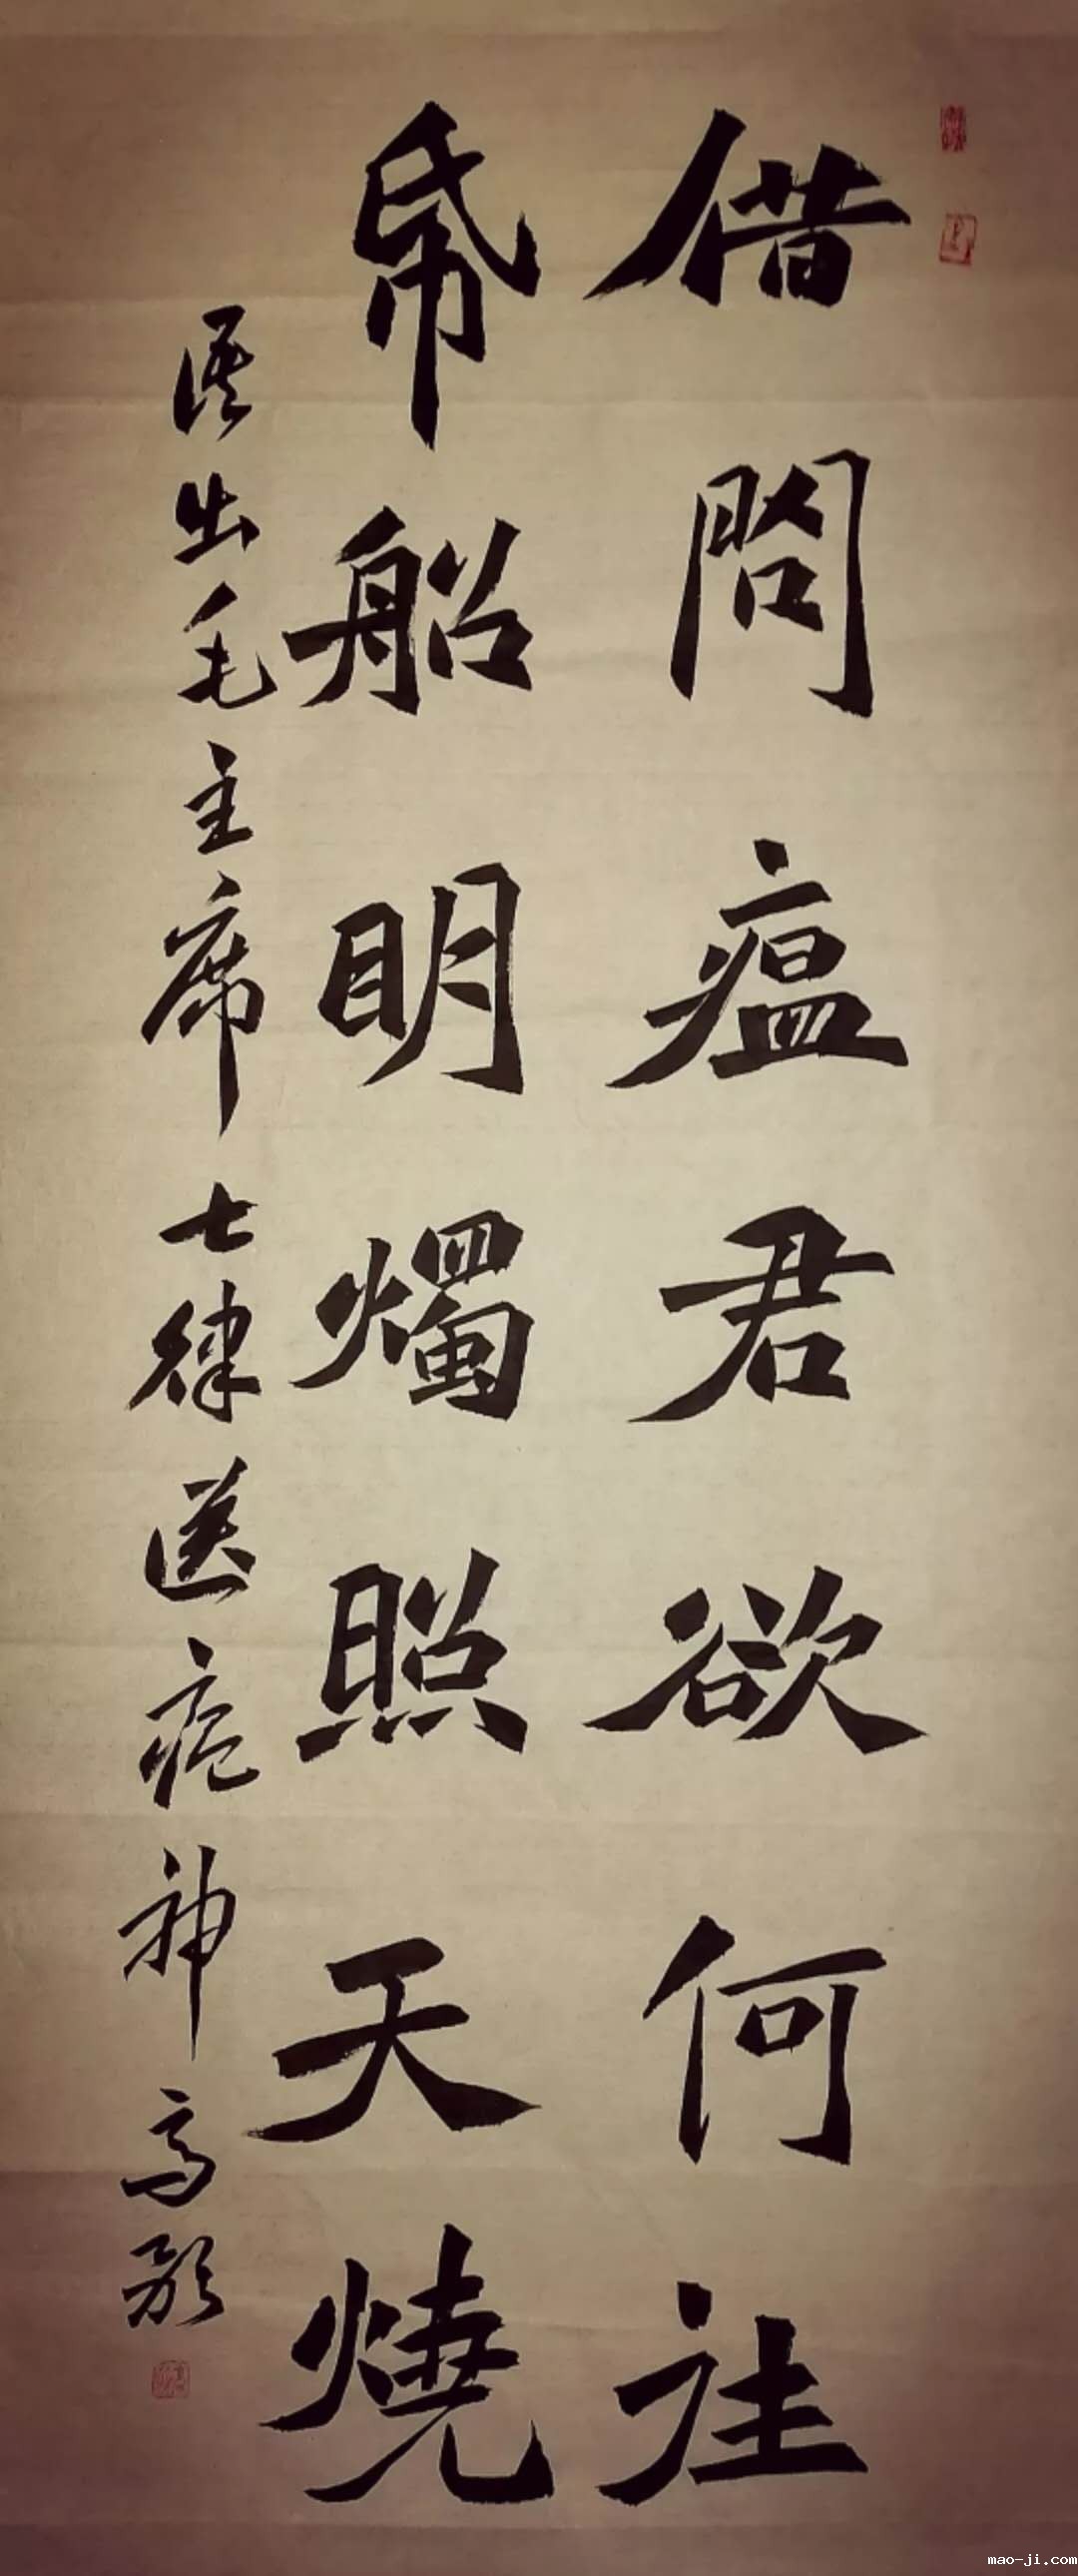 借問瘟君欲何往
帋船明燭照天燒
語出毛主席七律送瘟神 高
mao-ji.com